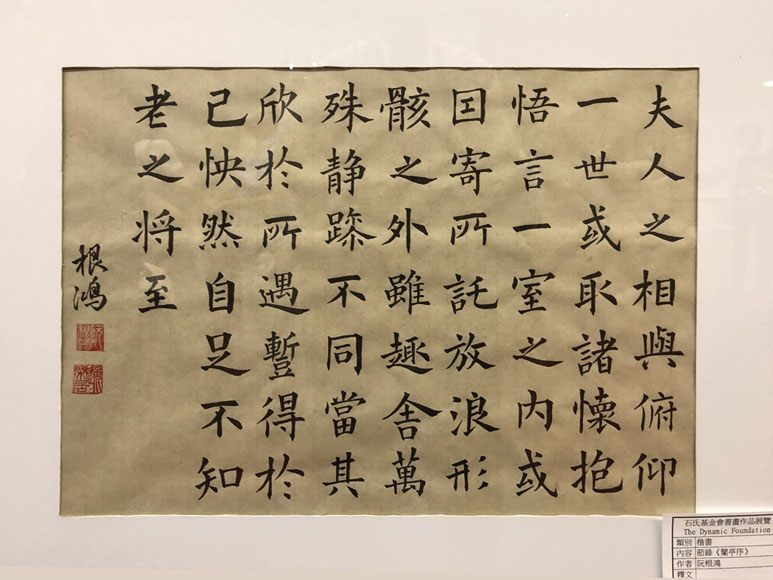 夫人之相與俯仰
一世或取諸懷抱
悟言一室之內或
囙寄所託放浪形
骸之外雖趣舎萬
殊静躁不同當其
欣於所遇暫得於
己怏然自足不知
老之将至
根鴻
石氏基金會書畫作品展覽
The Dynamic Foundation
類別 楷書
內容 節錄《蘭亭序》
作者 阮根鴻
釋文